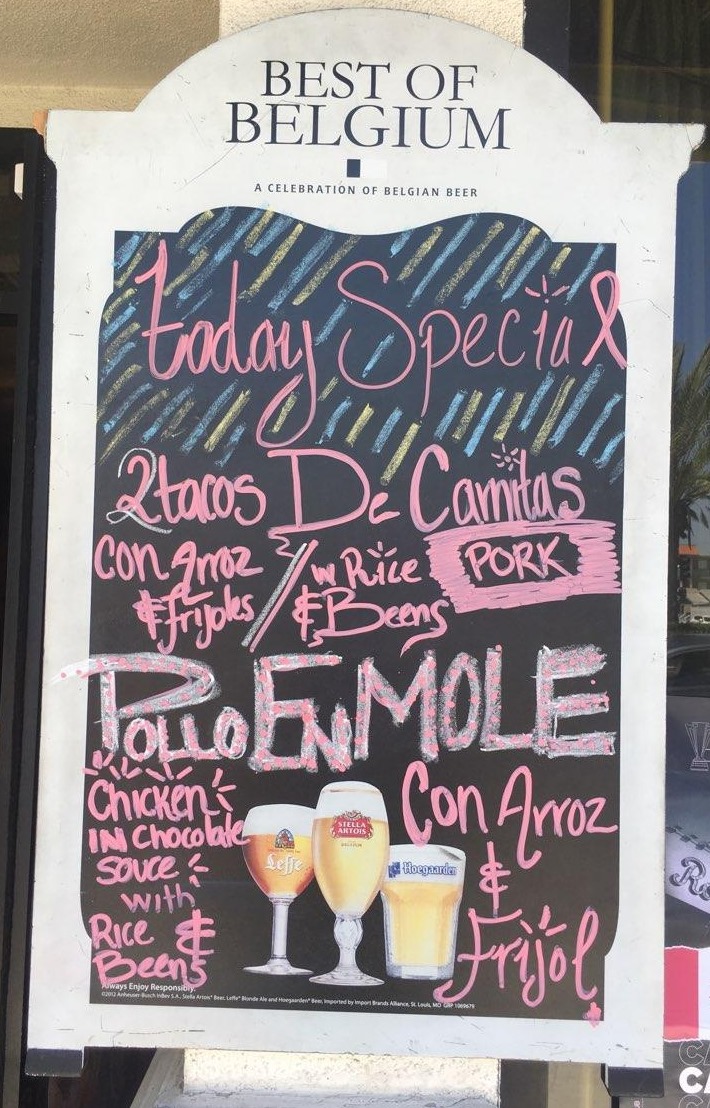 BEST OF
BELGIUM
A CELEBRATION OF BELGIAN BEER
today Special
2 tacos De Carnitas
PORK
con Arroz
& frijoles / w Rice
& Beens
POLLO EN MOLE
Chicken
IN Chocolate
Sauce
with
Rice &
Beens
Con Arroz
&
Frijol
Leffe
STELLA
ARTOIS
BELGIUM
Hoegaarden
Always Enjoy Responsibly.
©2012 Anheuser-Busch InBev S.A., Stella Artois® Beer, Leffe® Blonde Ale and Hoegaarden® Beer, Imported by Import Brands Alliance, St. Louis, MO